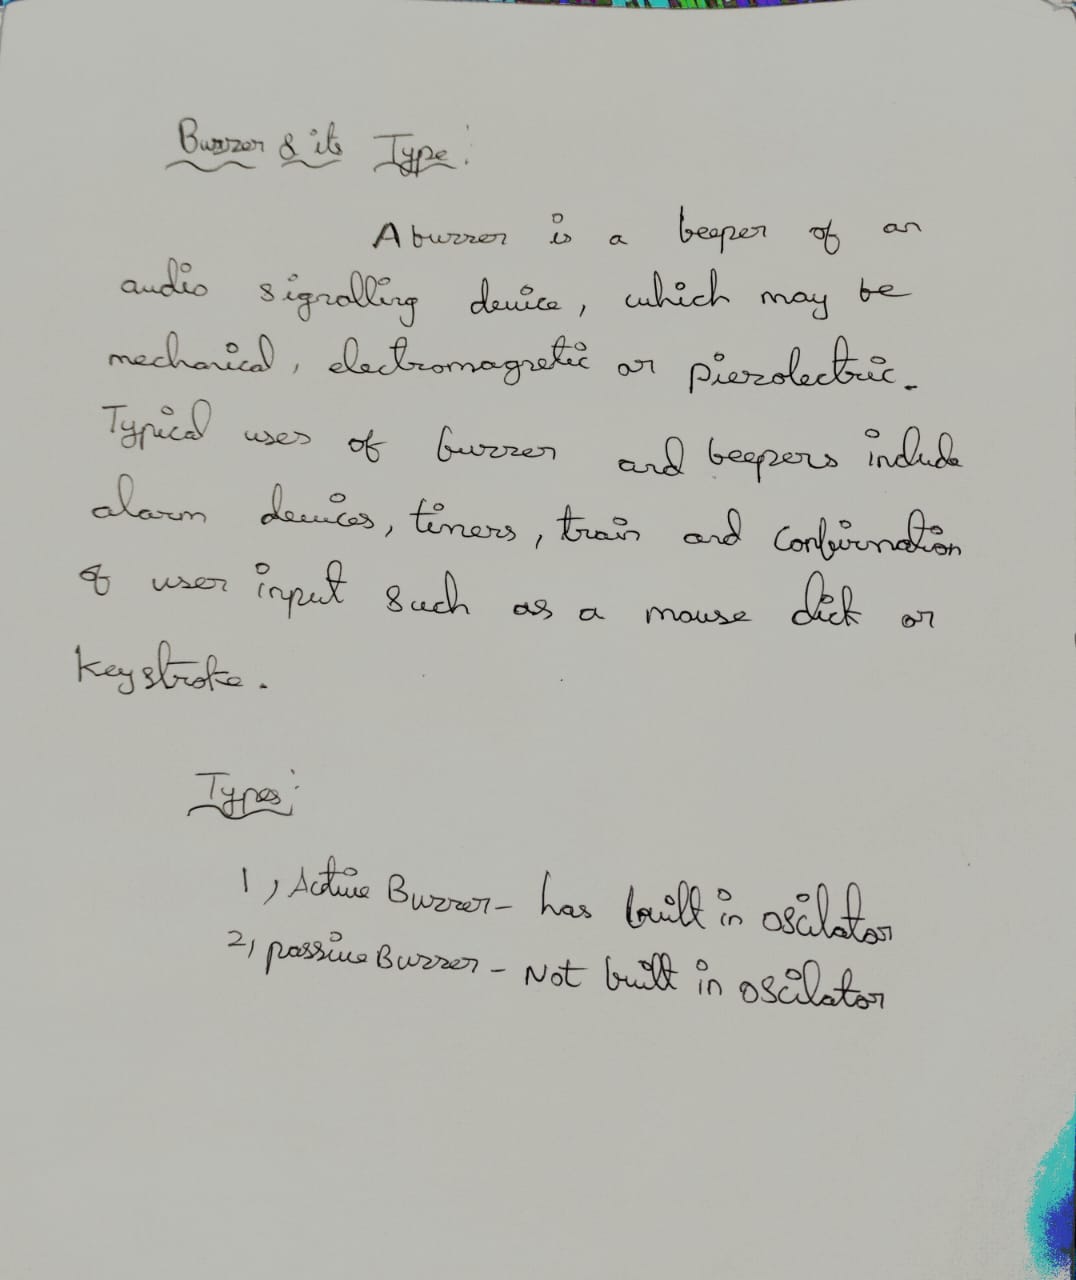 Buzzer & its Type:
A buzzer is a beeper of an
audio signalling device, which may be
mechanical, electromagnetic or piezolectric.
Typical uses of buzzer and beepers include
alarm devices, timers, train and confirmation
of user input such as a mouse click or
keystroke.
Types:
1, Active Buzzer - has built in oscilator
2, passive Buzzer - Not built in oscilator